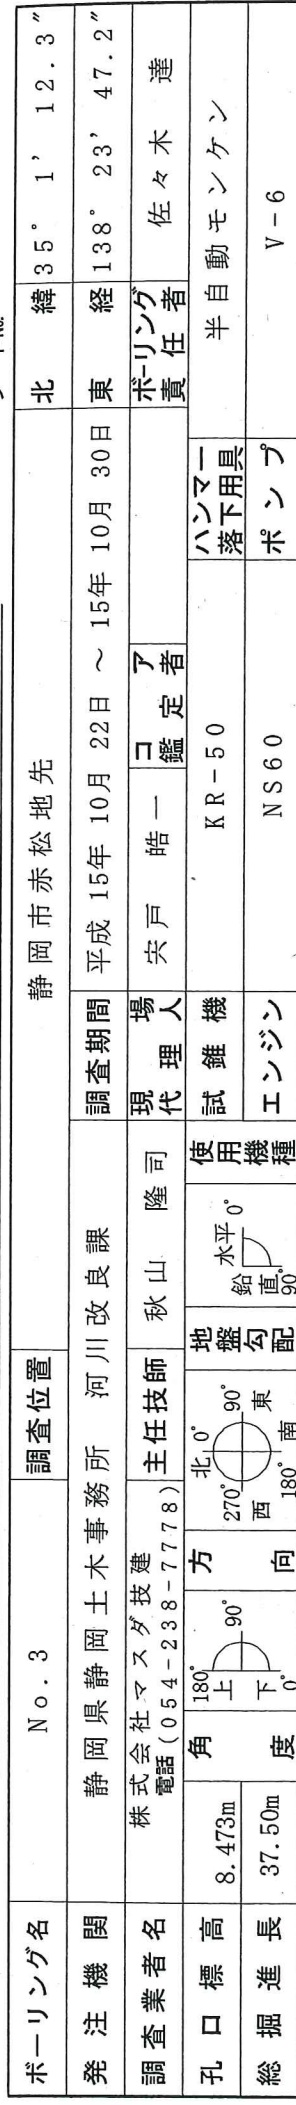 ボーリング名 No.3 調査位置 静岡市赤松地先 北緯 35° 1' 12.3"
発注機関 静岡県静岡土木事務所 河川改良課 調査期間 平成 15年 10月 22日 ～ 15年 10月 30日 東経 138° 23' 47.2"
調査業者名 株式会社マスダ技建
電話(054-238-7778) 主任技師 秋山 隆司 現場代理人 宍戸 皓一 コア鑑定者 ボーリング責任者 佐々木 達
孔口標高 8.473m 角度 180° 上 90° 下 0° 方向 北 0° 90° 東 南 180° 西 270° 地盤勾配 水平 0° 鉛直 90° 使用機種 試錐機 KR-50 ハンマー落下用具 半自動モンケン
総掘進長 37.50m エンジン NS60 ポンプ V-6